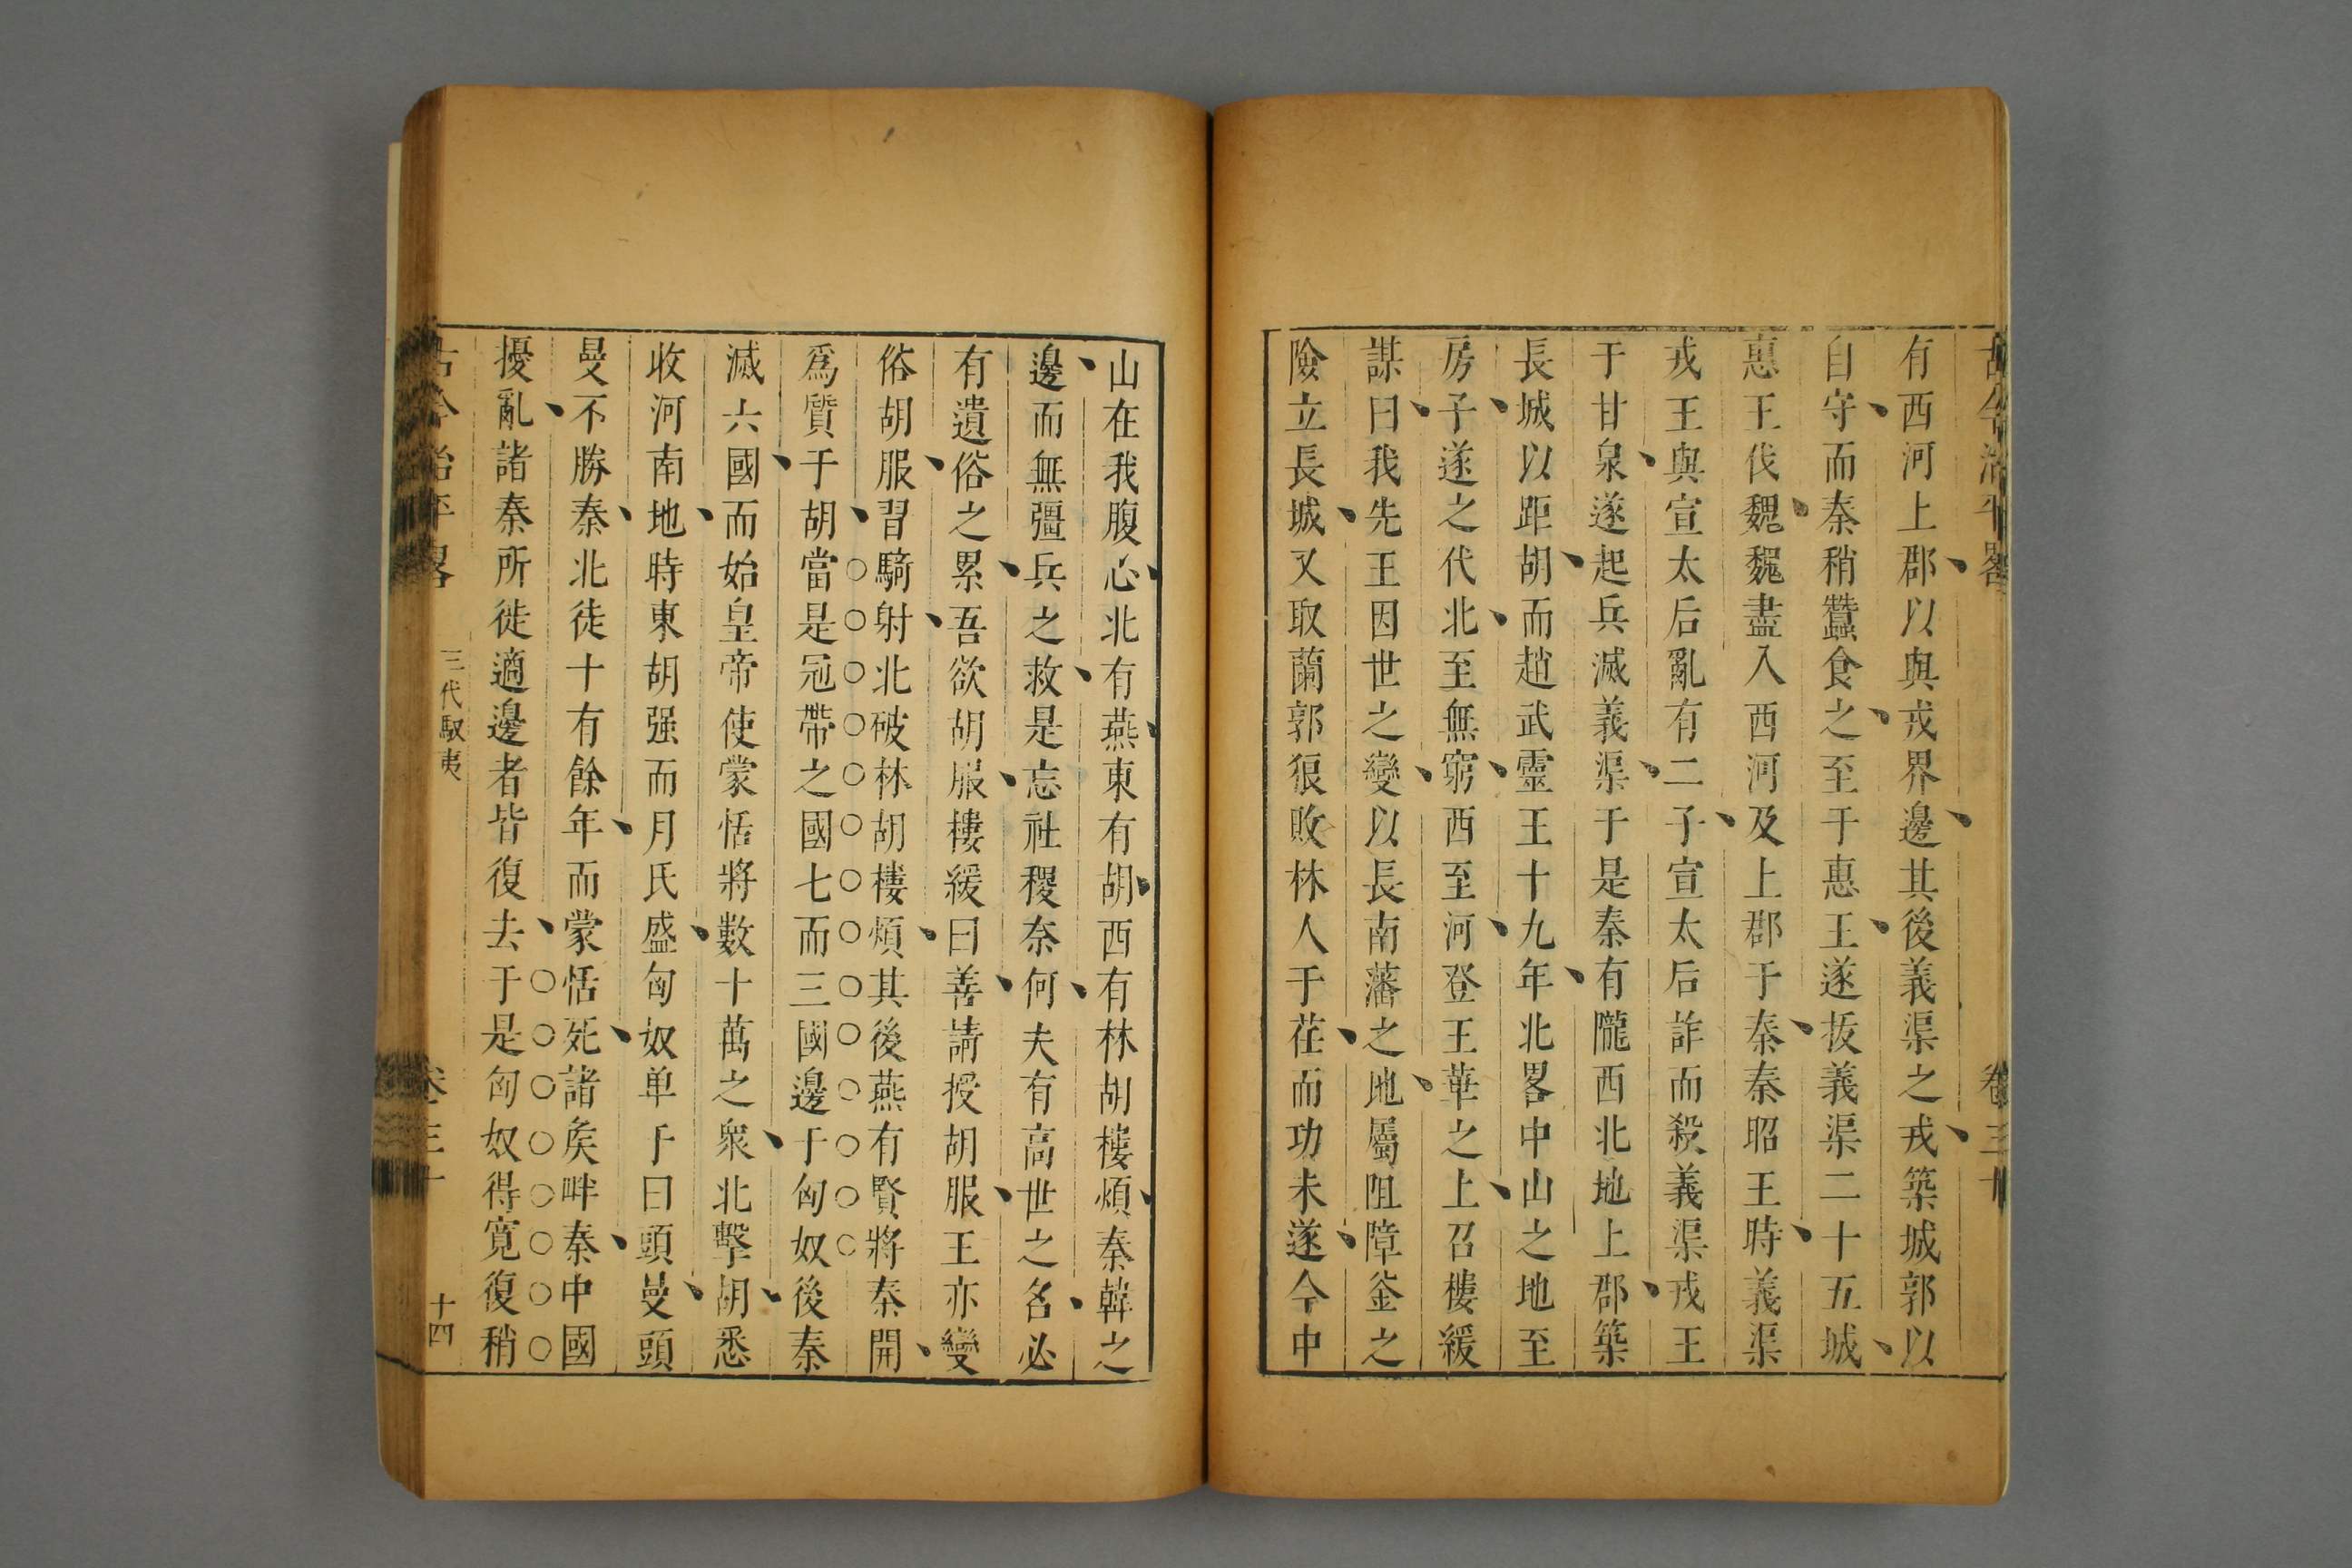 古今治平畧 卷三十
有西河上郡以與戎界邊其後義渠之戎築城郭以
自守而秦稍蠶食之至于惠王遂拔義渠二十五城
惠王伐魏魏盡入西河及上郡于秦秦昭王時義渠
戎王與宣太后亂有二子宣太后詐而殺義渠戎王
于甘泉遂起兵滅義渠于是秦有隴西北地上郡築
長城以距胡而趙武靈王十九年北畧中山之地至
房子遂之代北至無窮西至河登王華之上召樓緩
謀曰我先王因世之變以長南藩之地屬阻障釜之
險立長城又取藺郭狼敗林人于荏而功未遂今中
山在我腹心北有燕東有胡西有林胡樓煩秦韓之
邊而無彊兵之救是忘社稷奈何夫有高世之名必
有遺俗之累吾欲胡服樓緩曰善請授胡服王亦變
俗胡服習騎射北破林胡樓煩其後燕有賢將秦開
爲質于胡當是冠帶之國七而三國邊于匈奴後秦
滅六國而始皇帝使蒙恬將數十萬之衆北擊胡悉
收河南地時東胡强而月氏盛匈奴单于曰頭曼頭
曼不勝秦北徒十有餘年而蒙恬死諸矦畔秦中國
擾亂諸秦所徙適邊者皆復去于是匈奴得寬復稍
古今治平畧 三代馭夷 卷三十 十四